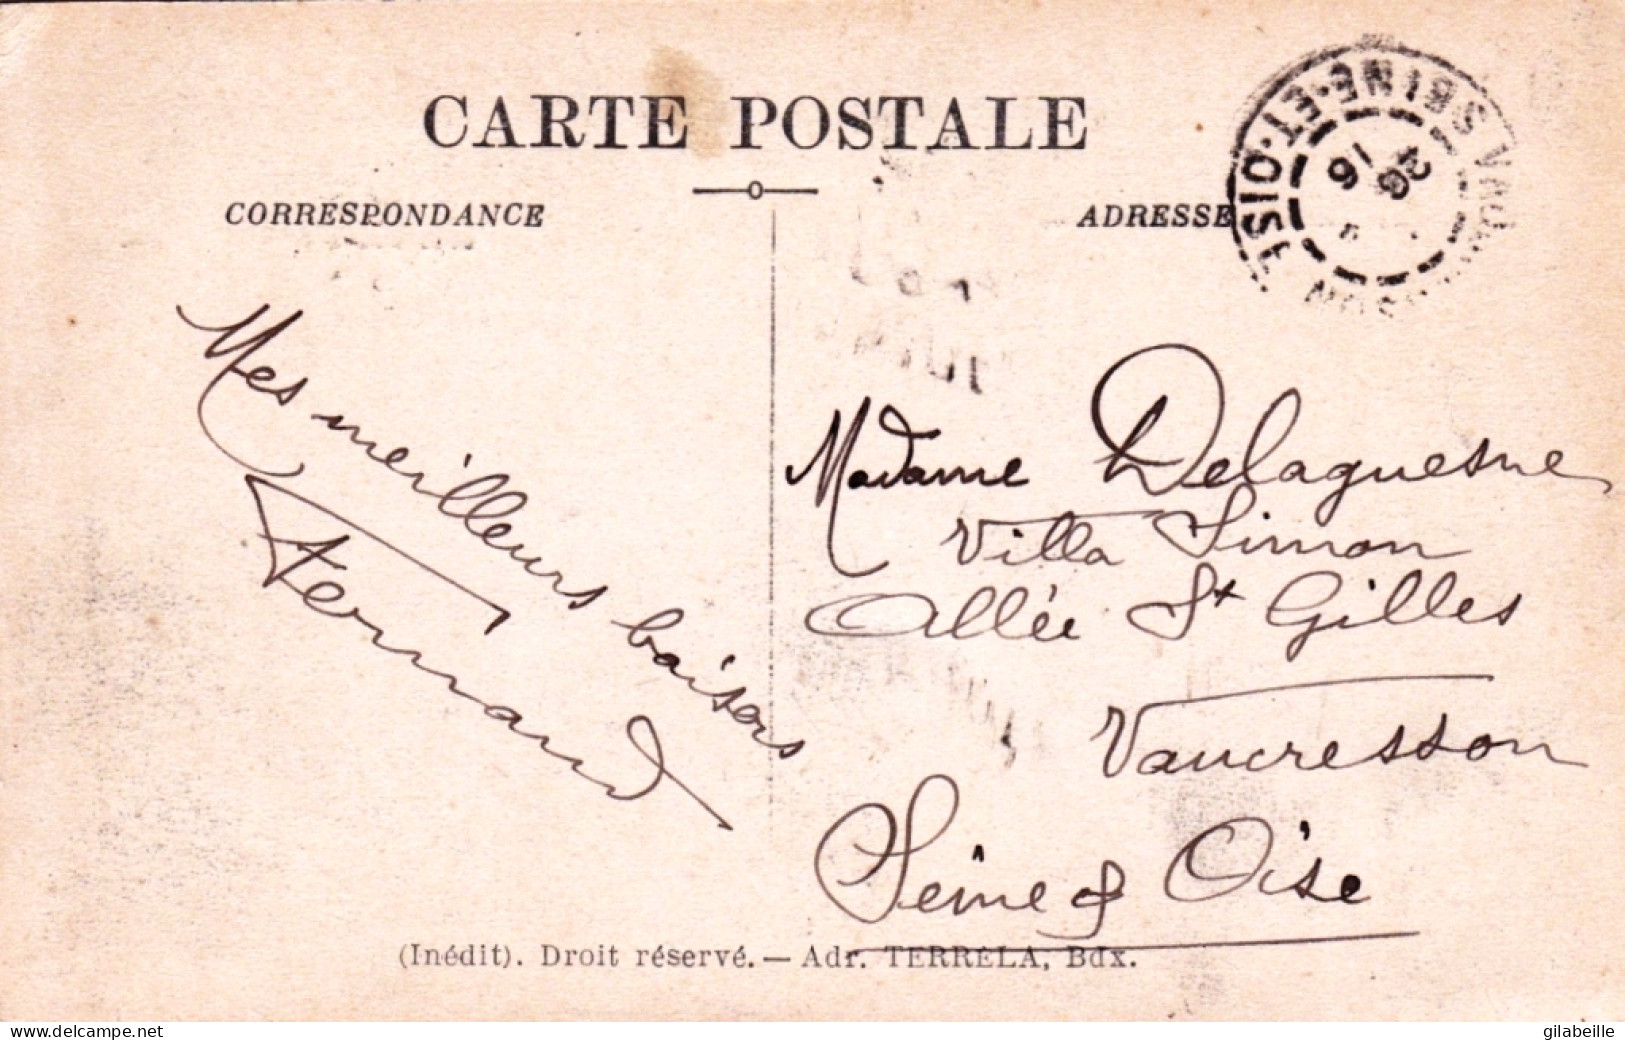 CARTE POSTALE
CORRESPONDANCE
ADRESSE
VAUCRESSON SEINE-ET-OISE
16
Mes meilleurs baisers
Fernand
Madame Delaquesne
Villa Simon
Allée St Gilles
Vaucresson
Seine & Oise
(Inédit). Droit réservé. — Adr. TERRÉLA, Bdx.
www.delcampe.net
gilabeille